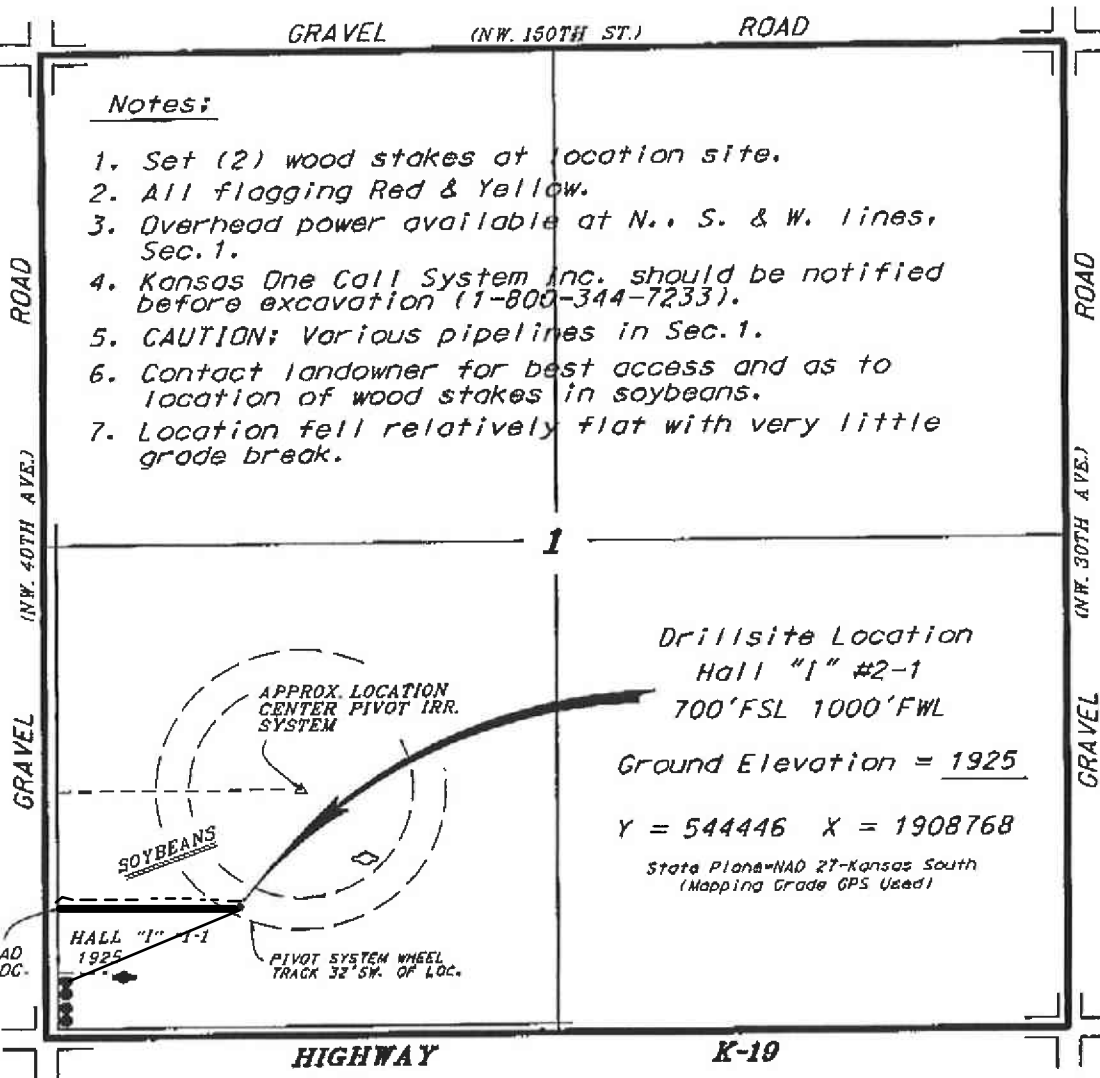 GRAVEL (NW. 150TH ST.) ROAD
Notes:
1. Set (2) wood stakes at location site.
2. All flagging Red & Yellow.
3. Overhead power available at N., S. & W. lines,
Sec. 1.
4. Kansas One Call System Inc. should be notified
before excavation (1-800-344-7233).
5. CAUTION: Various pipelines in Sec. 1.
6. Contact landowner for best access and as to
location of wood stakes in soybeans.
7. Location fell relatively flat with very little
grade break.
GRAVEL (NW. 40TH AVE.) ROAD
GRAVEL (NW. 30TH AVE.) ROAD
1
Drillsite Location
Hall "I" #2-1
700'FSL 1000'FWL
Ground Elevation = 1925
Y = 544446 X = 1908768
State Plane=NAD 27-Kansas South
(Mapping Grade GPS Used)
APPROX. LOCATION
CENTER PIVOT IRR.
SYSTEM
SOYBEANS
HALL "I"
1925
PIVOT SYSTEM WHEEL
TRACK 32'SW. OF LOC.
HIGHWAY K-19